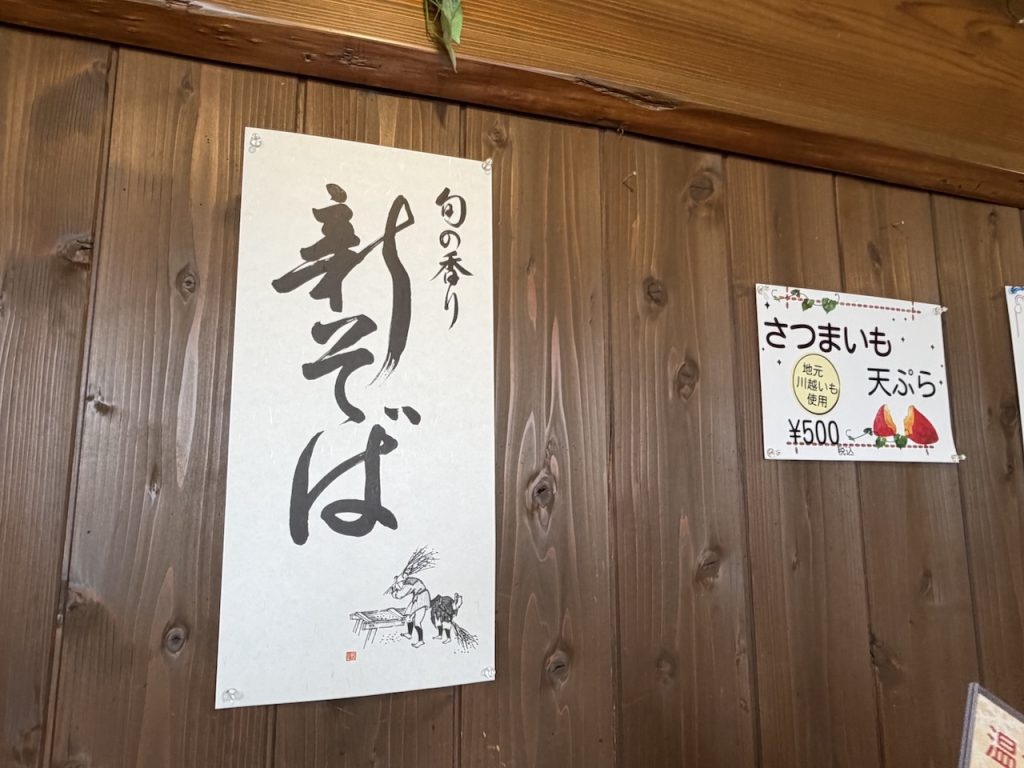 旬の香り
新そば
さつまいも
天ぷら
地元
川越いも
使用
¥500
税込
温